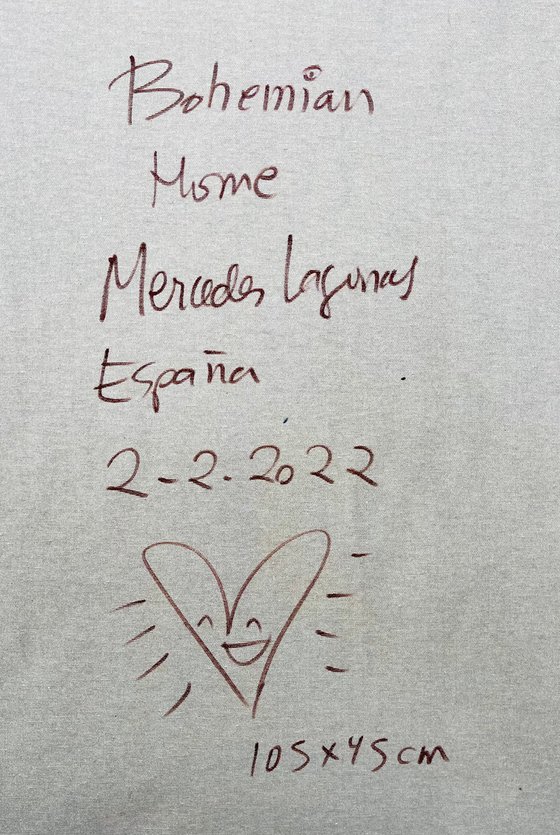 Bohemian
Home
Mercedes Lagunas
España
2-2-2022
105x45cm